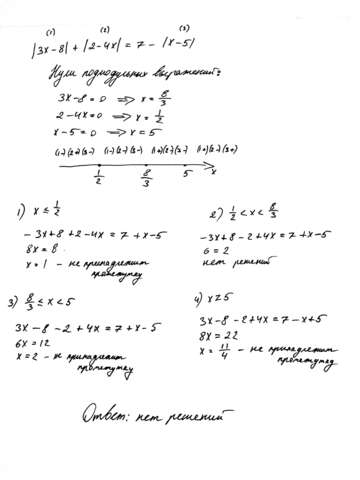 (1) (2) (3)
|3x-8| + |2-4x| = 7 - |x-5|
Нули подмодульных выражений:
3x-8=0 => x = 8/3
2-4x=0 => x = 1/2
x-5=0 => x = 5
(1-)(2+)(3-) (1-)(2-)(3-) (1+)(2-)(3-) (1+)(2-)(3+)
1/2 8/3 5 x
1) x ≤ 1/2
-3x+8+2-4x = 7+x-5
8x = 8
x = 1 - не принадлежит
промежутку
2) 1/2 < x < 8/3
-3x+8-2+4x = 7+x-5
6 = 2
нет решений
3) 8/3 ≤ x < 5
3x-8-2+4x = 7+x-5
6x = 12
x = 2 - не принадлежит
промежутку
4) x ≥ 5
3x-8-2+4x = 7-x+5
8x = 22
x = 11/4 - не принадлежит
промежутку
Ответ: нет решений